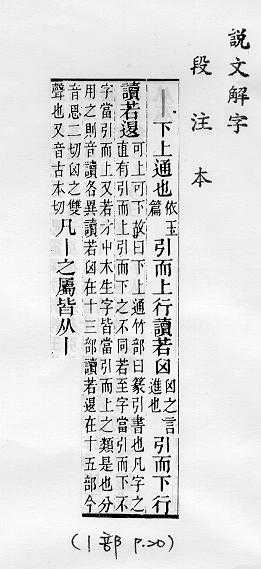 說文解字
段注本
丨下上通也依玉篇引而上行讀若囟囟之言進也引而下行
讀若𨓤可上可下故曰下上通竹部曰篆引書也凡字之
直有引而上引而下之不同若至字當引而下不
字當引而上又若才屮木生字皆當引而上之類是也分
用之則音讀各異讀若囟在十三部讀若𨓤在十五部今
音思二切囟之雙
聲也又音古本切凡丨之屬皆从丨
(丨部 P.20)